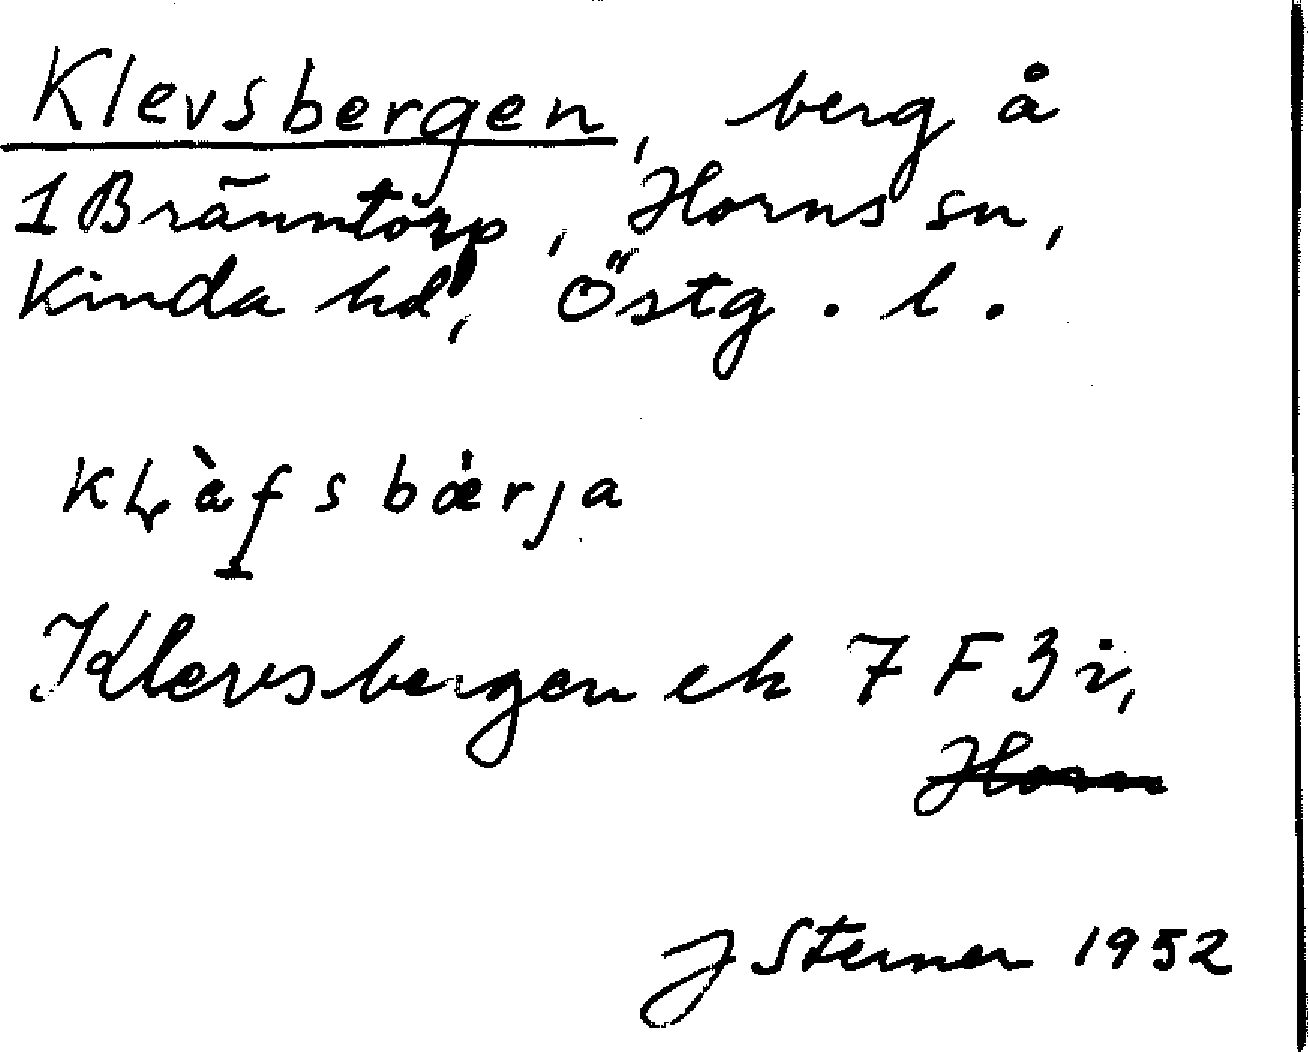 Klevsbergen, berg å
1 Bränntorp, Horns sn,
Kinda hd, Östg. l.
kḷàfsbærja
Klevsbergen ek 7 F 3 i,
Horn
J Sterner 1952